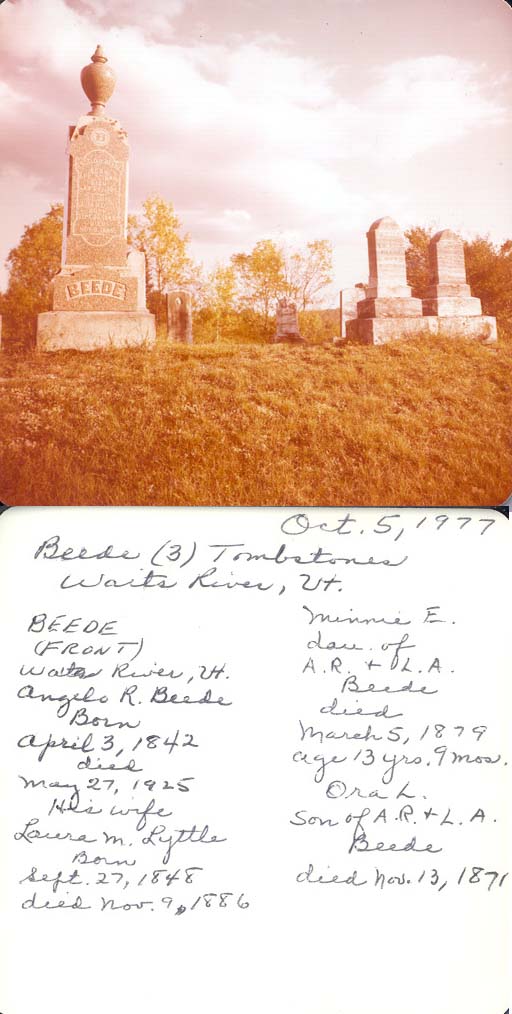 BEEDE
Oct. 5, 1977
Beede (3) Tombstones
Waits River, Vt.
BEEDE
(FRONT)
Waits River, Vt.
Angelo R. Beede
Born
April 3, 1842
died
May 27, 1925
His wife
Laura M. Lyttle
Born
Sept. 27, 1848
died Nov. 9, 1886
Minnie E.
dau. of
A.R. + L.A.
Beede
died
March 5, 1879
age 13 yrs. 9 mos.
Ora L.
Son of A.R. + L.A.
Beede
died Nov. 13, 1871